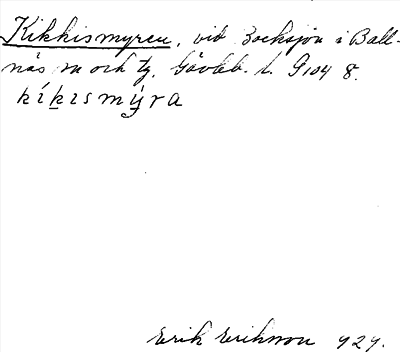 Kikkismyren, vid Zocksjön i Boll-
näs sn och tg. Gävleb. l. G 104 8.
kíkismýra
Erik Erikson 929.